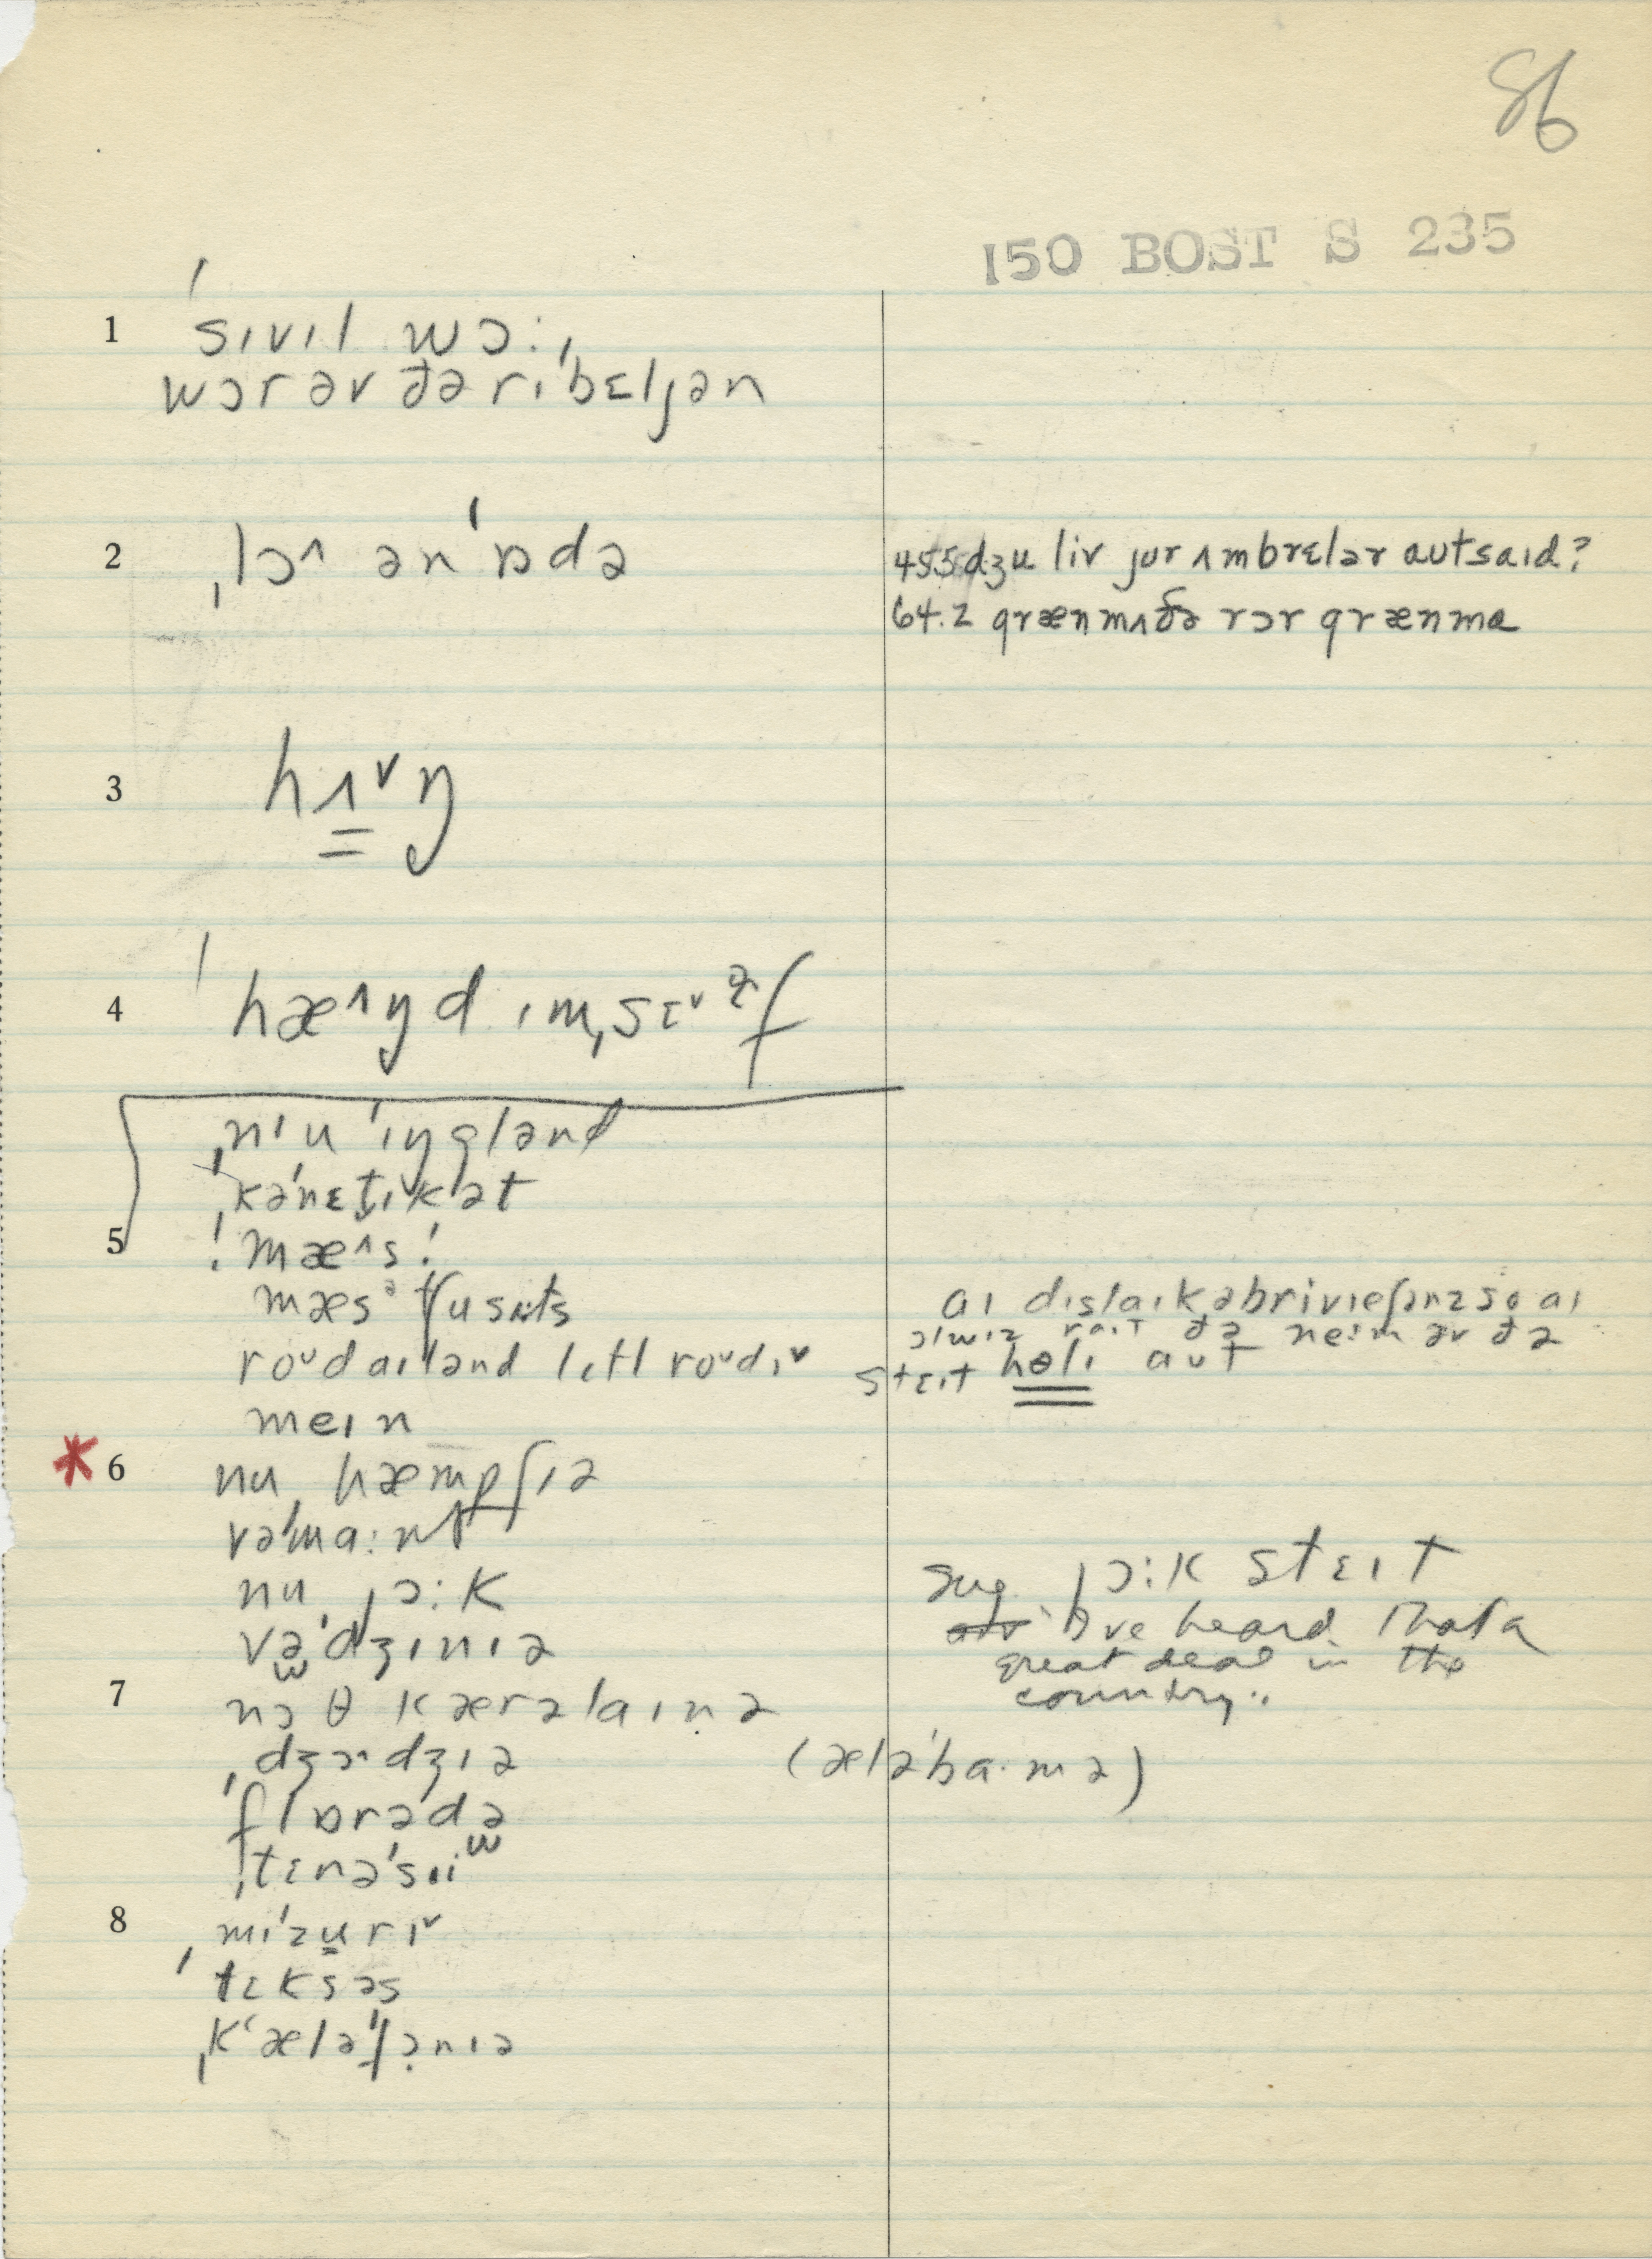 86
150 BOST S 235
1 ˈsɪvɪl wɔː,
wɔr əv ðə rɪˈbɛljən
2 ˌlɔ^ ən ˈɒdə
455 dʒu liv jur ʌmbrɛlər autsaɪd?
64.2 grænmʌðə rɔr grænmɑ
3 hʌ˅ŋ
4 ˈhæ^ŋd ɪmˌsɛ˅əf
ˌnɪu ˈɪŋglənd
ˌkəˈnɛt̬ɪkət
5 ! mæ^s !
mæsəˈtʃusɪts
ro˅daɪlənd lɪtl ro˅dɪ˅
aɪ dɪslaɪk əbriviɛʃənz so aɪ
ɔlwɪz raɪt ðə neɪm əv ðə
stɛɪt holɪ aut
meɪn
* 6 nu hæmpʃɪə
vəˈmaːnt
nu jɔːk
sug. jɔːk stɛɪt
I've heard that a
great deal in the
country."
vəˈdʒɪnɪə
7 nɔθ kærəlaɪnə
ˌdʒɔ^dʒɪə (æləˈba·mə)
ˈflɒrədə
ˌtɛnəˈsɪi
8 mɪˈzurɪ˅
ˈtɛksəs
ˌkʻæləˈfɔnɪə